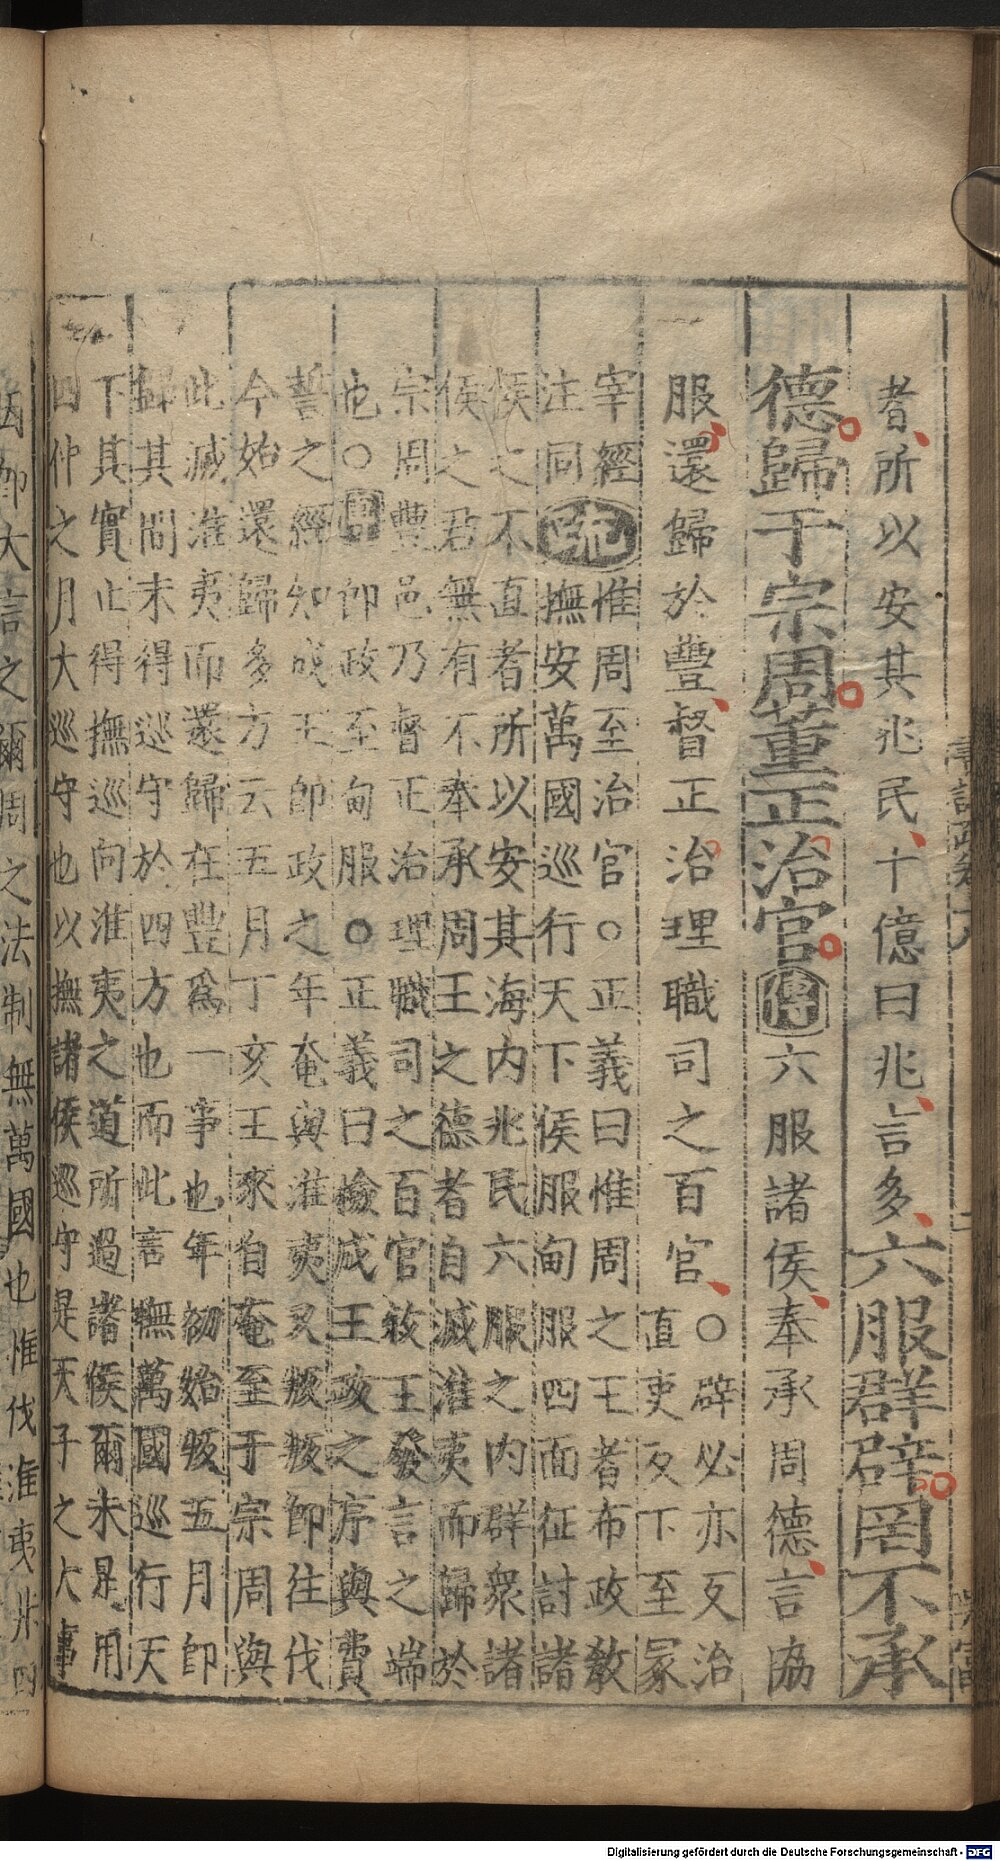 者所以安其兆民十億曰兆言多六服群辟罔不承
德歸于宗周董正治官傳六服諸侯奉承周德言協
服還歸於豐督正治理職司之百官○辟必亦反治
直吏反下至冢
宰經惟周至治官○正義曰惟周之王者布政敎
注同疏撫安萬國巡行天下侯服甸服四面征討諸
侯之不直者所以安其海内兆民六服之内群衆諸
侯之君無有不奉承周王之德者自滅淮夷而歸於
宗周豐邑乃督正治理職司之百官敘王發言之端
也○傳卽政至甸服○正義曰檢成王政之序與費
誓之經知成王卽政之年奄與淮夷又叛叛卽往伐
今始還歸多方云五月丁亥王來自奄至于宗周與
此滅淮夷而還歸在豐爲一事也年初始叛五月卽
歸其間未得巡守於四方也而此言撫萬國巡行天
下其實止得撫巡向淮夷之道所過諸侯爾未是用
四仲之月大巡守也以撫諸侯巡守是天子之大事
因卽大言之爾周之法制無萬國也惟伐淮夷非四
Digitalisierung gefördert durch die Deutsche Forschungsgemeinschaft - DFG